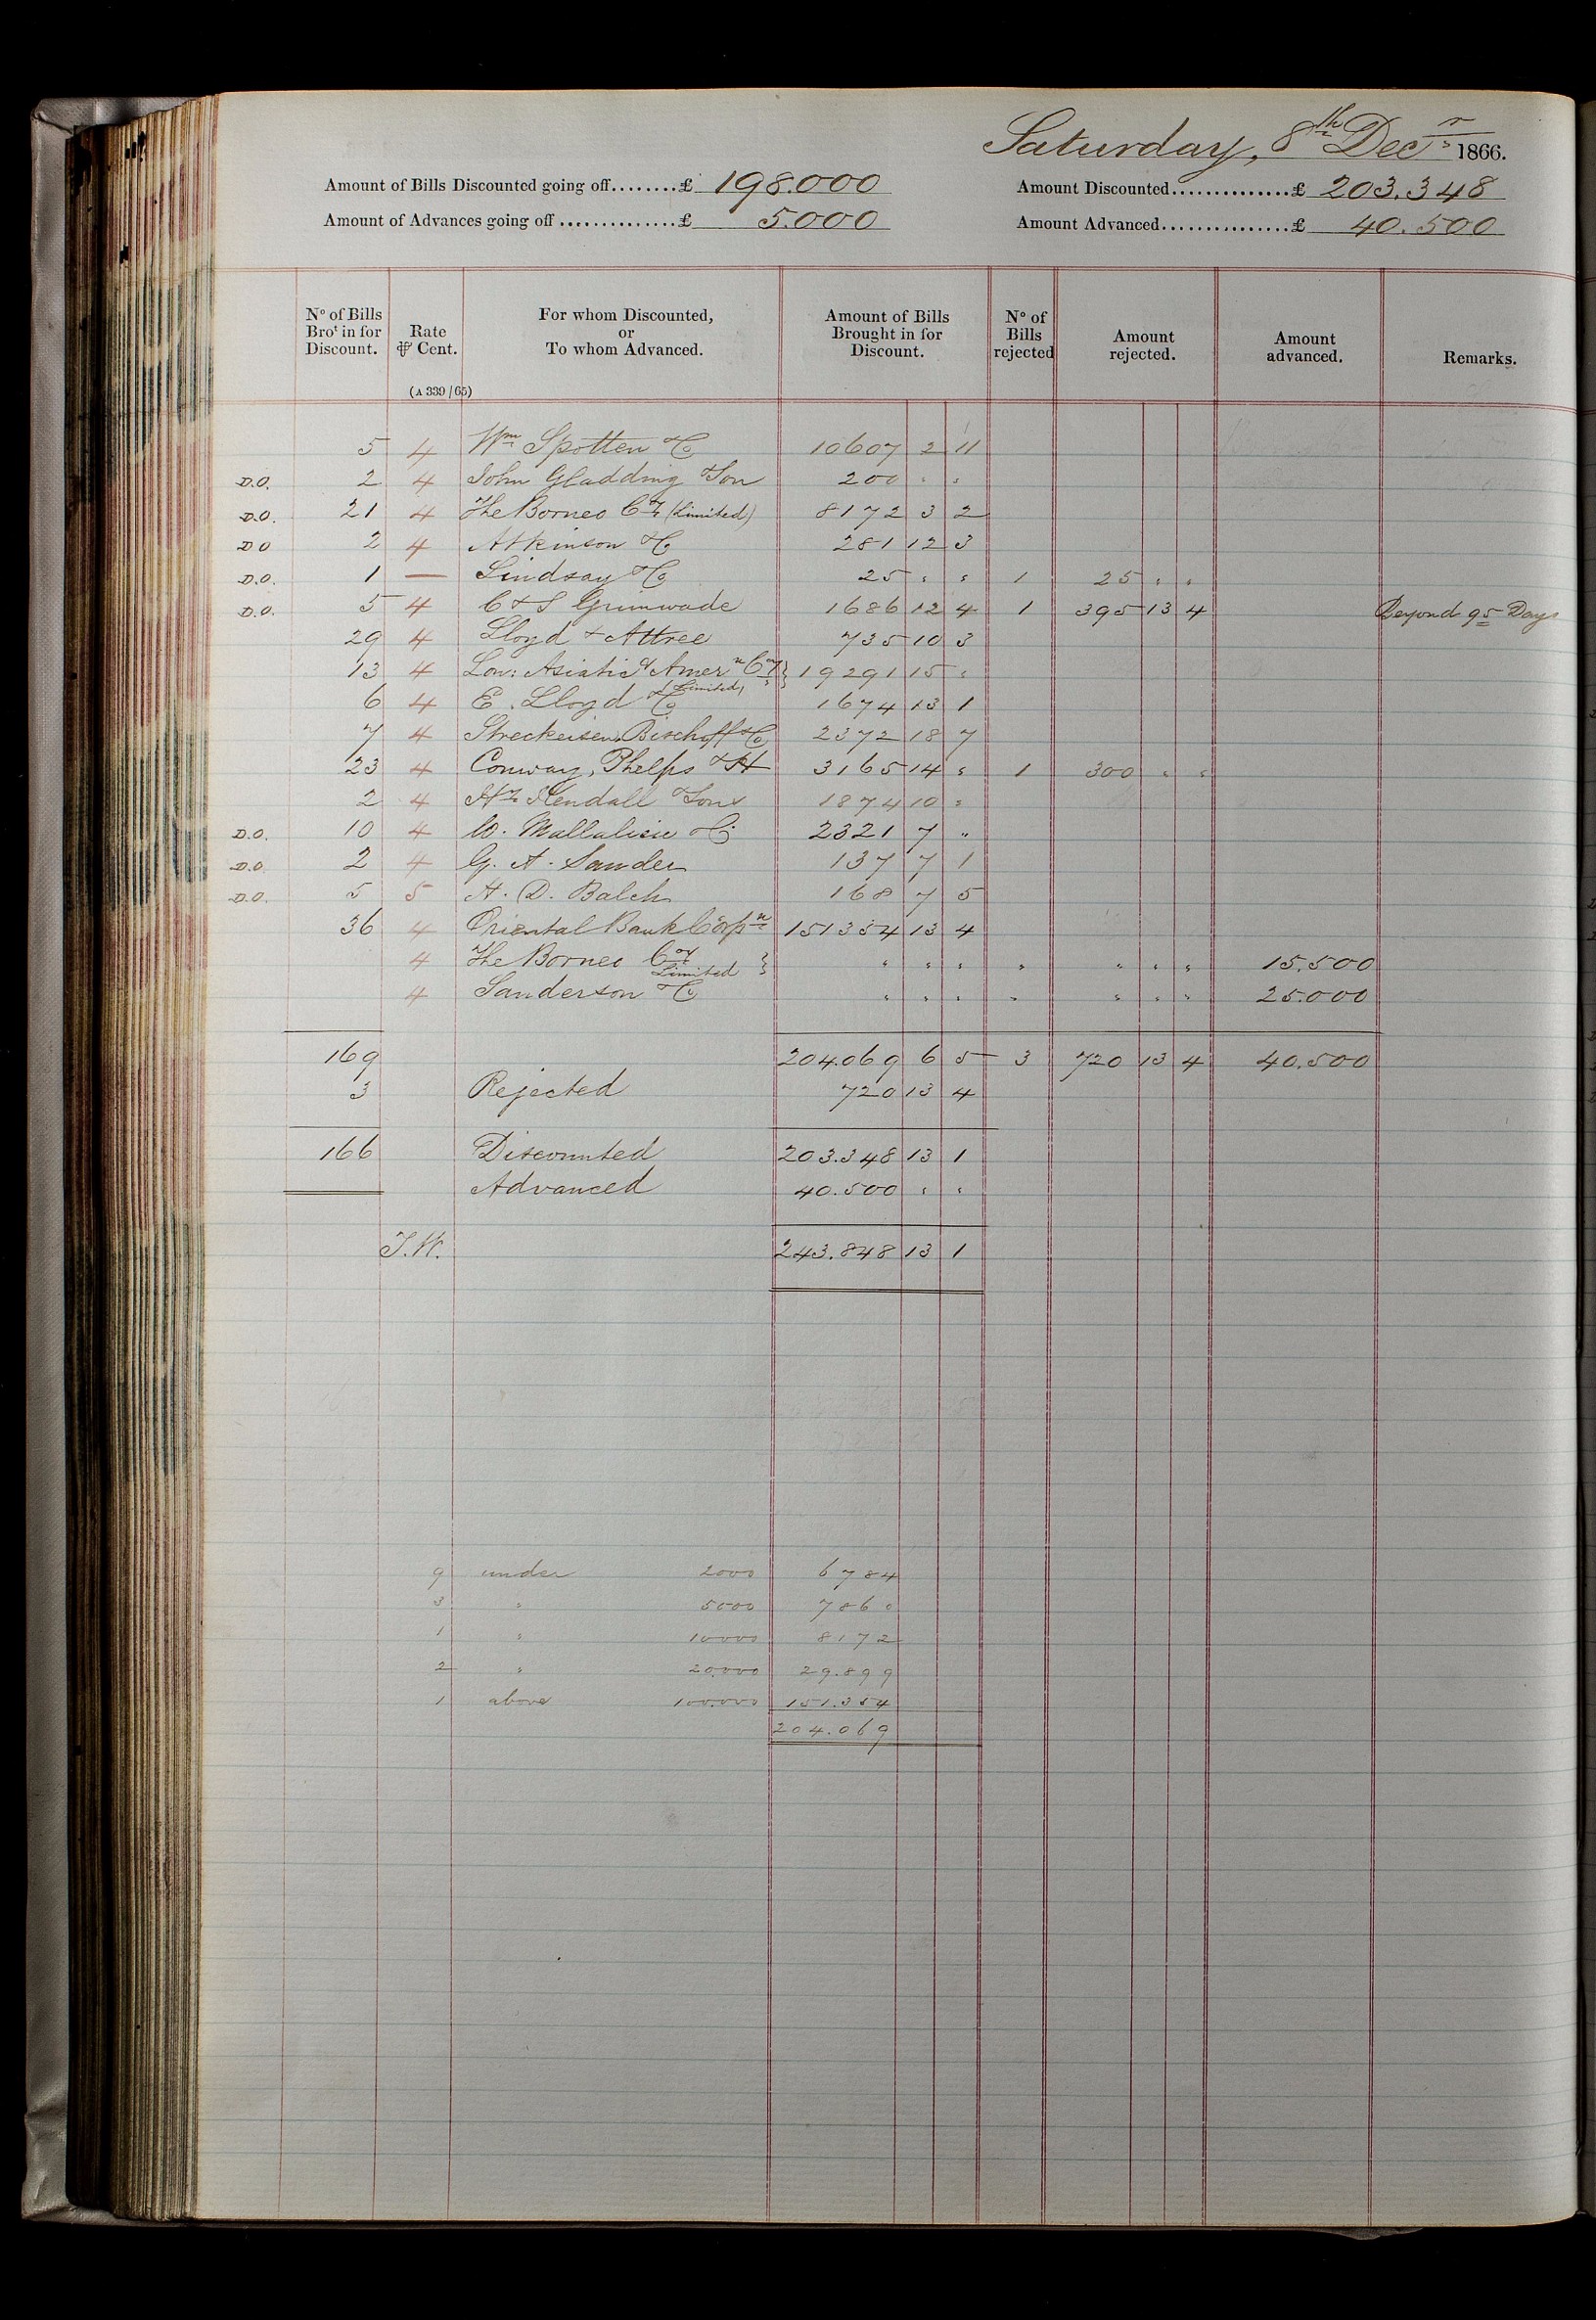 Saturday, 8th Decr 1866.
Amount of Bills Discounted going off........£ 198.000 Amount Discounted...............£ 203.348
Amount of Advances going off ..............£ 5.000 Amount Advanced................£ 40.500
No of Bills Brot in for Discount. Rate ⅌ Cent. For whom Discounted, or To whom Advanced. Amount of Bills Brought in for Discount. No of Bills rejected Amount rejected. Amount advanced. Remarks.
(A 339 / 65)
5 4 Wm Spotten & Co 10607 2 11
D.O. 2 4 John Gladding & Son 200 " "
D.O. 21 4 The Borneo Cy (Limited) 8172 3 2
D O 2 4 Atkinson & Co 281 12 3
D.O. 1 — Lindsay & Co 25 " " 1 25 " "
D.O. 5 4 C & S Grimwade 1686 12 4 1 395 13 4 Beyond 95 Days
29 4 Lloyd & Attree 735 10 3
13 4 Lon: Asiatic & Amern Coy } 19291 15 "
(Limited)
6 4 E. Lloyd & Co 1674 13 1
7 4 Streckeisen Bischoff & Co 2372 18 7
23 4 Conway, Phelps & H 3165 14 " 1 300 " "
2 4 Hy Kendall & Sons 1874 10 "
D.O. 10 4 W. Mallalieu & Co 2321 7 "
D.O. 2 4 G. A. Sander 137 7 1
D.O. 5 5 H. D. Balch 168 7 5
36 4 Oriental Bank Corpn 151354 13 4
4 The Borneo Coy Limited } " " " " " " " 15.500
4 Sanderson & Co " " " " " " " 25.000
169 204.069 6 5 3 720 13 4 40.500
3 Rejected 720 13 4
166 Discounted 203.348 13 1
Advanced 40.500 " "
J.W. 243.848 13 1
9 under 2000 6784
3 " 5000 7860
1 " 10000 8172
2 " 20.000 29.899
1 above 100.000 151.354
204.069